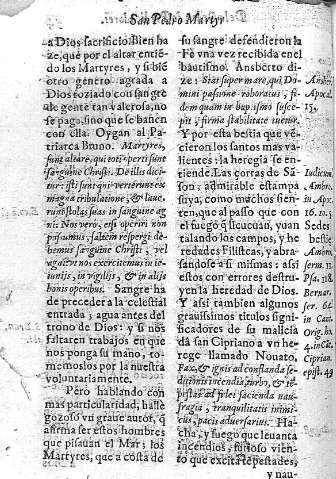 San Pedro Martyr
a Dios sacrificio. Bien ha-
ze, que por el altar entien-
do los Martyres, y si bien
otro genero agrada a
Dios roziado con sangre
de gente tan valerosa, no
se paga, sino que se bañen
con ella. Oygan al Pa-
triarca Bruno. Martyres,
sunt altare, qui toti sperti sunt
sanguine Christi. De illis dici-
tur: isti sunt qui venerunt ex
magna tribulatione, & laue-
runt stolas suas in sanguine ag
ni: Nos verò, etsi operiri non
possumus, saltem respergi de-
bemus sanguine Christi, vel
agat et nos exercitemus in ie-
iunijs, in vigilijs, & in alijs
bonis operibus. Sangre ha
de preceder a la celestial
entrada; agua antes del
trono de Dios: y si nos
faltaren trabajos en que
nos ponga su mano, to-
memoslos por la nuestra
voluntariamente.
Pero hablando con
mas particularidad, hallè
gozoso vn graue autor, q̃
afirma ser estos hombres
que pisauan el Mar; los
Martyres, que a costa de
su sangre defendieron la
Fè vna vez recibida en el
bautismo. Ansberto di-
ze: Stat super mare, qui Do-
mini passione roboratus, fi-
dem quam in baptismo susce-
pit, firma stabilitate tuetur.
Y por esta bestia que vè-
cieron los santos mas va-
lientes: la heregia se en-
tiende. Las zorras de Sã-
son; admirable estampa
suya, como muchos sien-
ten, que al passo que con
el fuego q̃ secutan, yuan
talando los campos, y he
redades Filisteas, y abra-
sandose a si mismas: assi
estos con errores destru-
yen la heredad de Dios.
Y assi tambien algunos
grauissimos titulos signi-
ficadores de su malicia
dà san Cipriano a vn he-
rege llamado Nouato,
Fax, & ignis ad conflanda se-
ditionis incendia, turbo, & tẽ-
pestas ad fidei facienda nau-
fragia, tranquilitatis inimi-
cus, pacis aduersarius. Ha-
cha, y fuego que leuanta
incendios, furioso viento
que excita tempestades,
y nau-
Ansb. in
Apocal.
15.
Iudicum.
Ambro.
in Apx.
16. 10.
Sedes
bestie
Ambro.
serm. 11.
Psa. 118.
Bernar.
ser. 64
in Cant.
Orig. h.
4. in Cãt.
Ciprian.
epist. 49